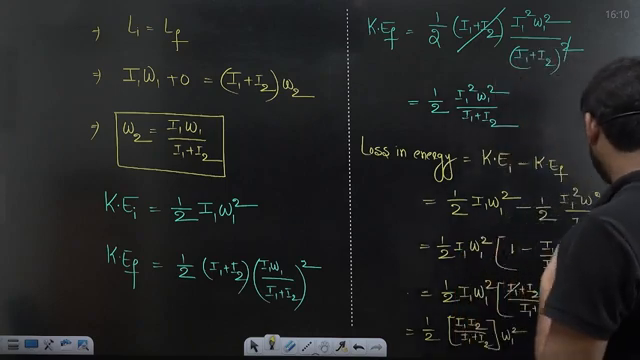 ⇒ L₁ = L_f
⇒ I₁ω₁ + 0 = (I₁+I₂) ω₂
⇒ ω₂ = I₁ω₁ / (I₁+I₂)
K.Eᵢ = 1/2 I₁ω₁²
K.E_f = 1/2 (I₁+I₂) (I₁ω₁ / (I₁+I₂))²
16:10
K.E_f = 1/2 (I₁+I₂) I₁²ω₁² / (I₁+I₂)²
= 1/2 I₁²ω₁² / (I₁+I₂)
Loss in energy = K.Eᵢ − K.E_f
= 1/2 I₁ω₁² − 1/2 I₁²ω
= 1/2 I₁ω₁² [1 − I₁
= 1/2 I₁ω₁² [I₁+I₂
= 1/2 [I₁I₂ / (I₁+I₂)] ω₁²